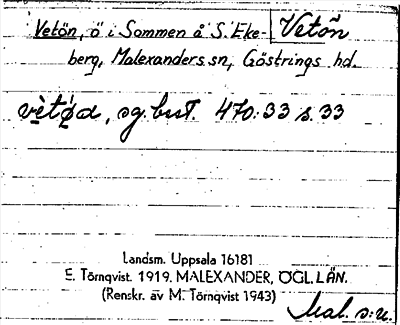 Vetön
Vetön, ö i Sommen å S. Eke-
berg, Malexanders sn, Göstrings hd.
vètø̀a, sg. best. 470:33 s. 33
Landsm. Uppsala 16181
E. Törnqvist. 1919. MALEXANDER, ÖGL. LÄN.
(Renskr. av M. Törnqvist 1943)
Mal. s:n.